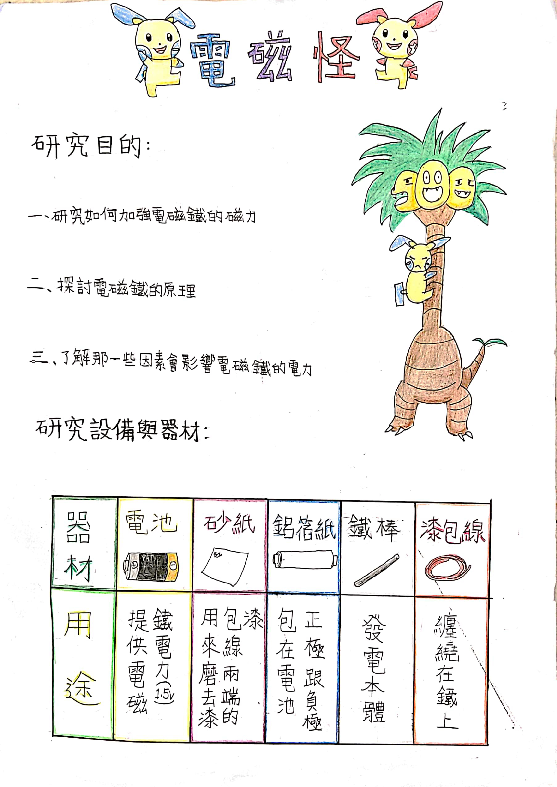 電磁怪
研究目的:
一、研究如何加強電磁鐵的磁力
二、探討電磁鐵的原理
三、了解那一些因素會影響電磁鐵的電力
研究設備與器材:
器材 電池 砂紙 鋁箔紙 鐵棒 漆包線
用途 提供電磁鐵電力(1.5v) 用來磨去漆包線兩端的漆 包在電池正極跟負極 發電本體 纏繞在鐵上